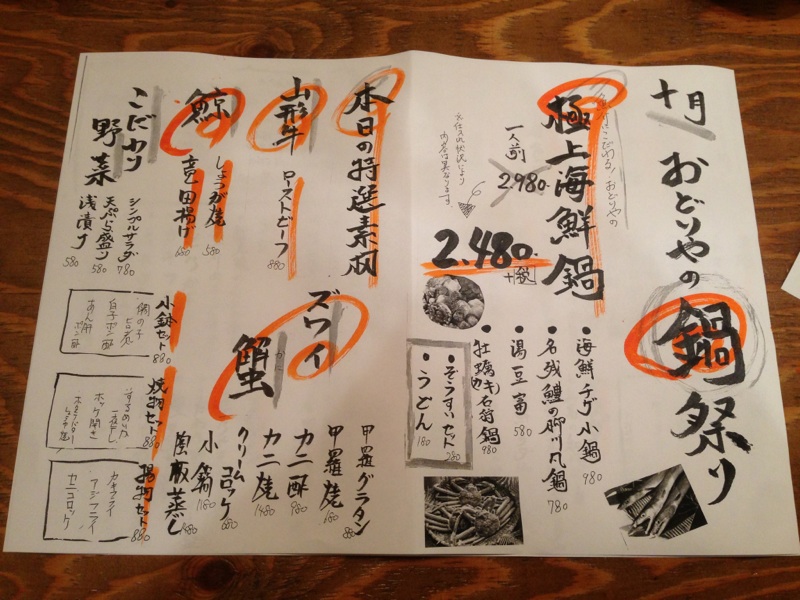 十月
おどりやの
鍋祭り
極上海鮮鍋
一人前
2.980.
2.480.
+税
※仕入の状況により
内容は異なります。
・海鮮チゲ小鍋 980
・名残鱧の柳川風鍋 780
・湯豆富 580
・牡蠣(カキ)石苔鍋 980
・ぞうすいセット 280
・うどん 180
本日の特選素材
山形牛
ローストビーフ 880
鯨
しょうが焼 580
竜田揚げ 680
こだわり
野菜
シンプルサラダ 780
天ぷら盛り 580
浅漬け 580
ズワイ
蟹
かに
甲羅グラタン
甲羅焼
カニ酢 980
カニ焼 1480
クリームコロッケ 680
小鍋 1180
陶板蒸し 1480
小鉢セット 880
鯛の子旨煮
白子ポン酢
あん肝ポン酢
焼物セット 880
するめいか一夜干し
ホッケ開き
揚物セット 880
カキフライ
アジフライ